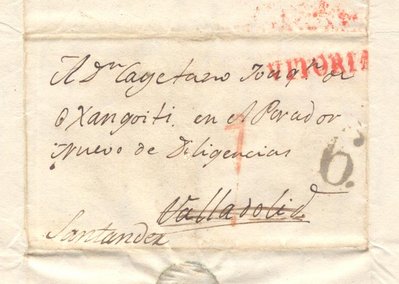 VITORIA
A Dn Cayetano Joaqn de
Oxangoiti en el Parador
Nuevo de Diligencias
6.
Valladolid
Santander